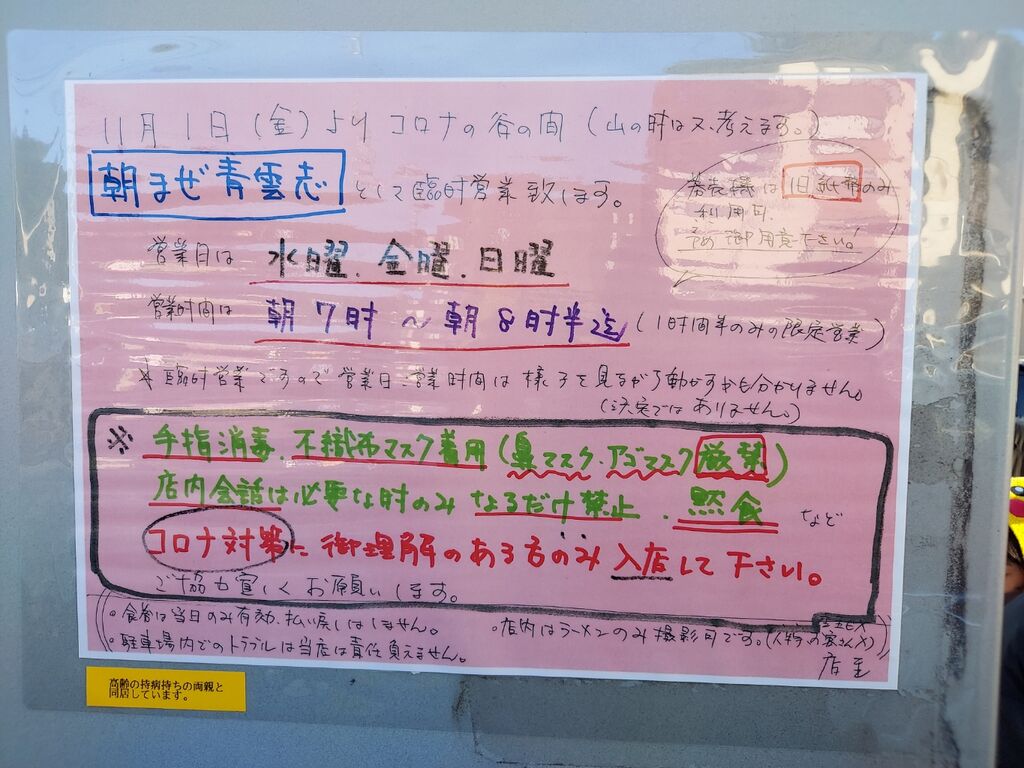 11月1日(金)よりコロナの谷の間(山の時は又、考えます。)
朝まぜ青雲志として臨時営業致します。
券売機は旧紙幣のみ
利用可、
予め御用意下さい!
営業日は 水曜、金曜、日曜
営業時間は 朝7時〜朝8時半迄(1時間半のみの限定営業)
※臨時営業ですので営業日、営業時間は様子を見ながら動かすかも分かりません。
(決定ではありません。)
※手指消毒、不織布マスク着用(鼻マスク、アゴマスク厳禁)
店内会話は必要な時のみなるだけ禁止、黙食 など
コロナ対策に御理解のある方のみ入店して下さい。
ご協力宜しくお願いします。
。食券は当日のみ有効、払い戻しはしません。
。駐車場内でのトラブルは当店は責任負えません。
。店内はラーメンのみ撮影可です。
店主
高齢の持病持ちの両親と
同居しています。